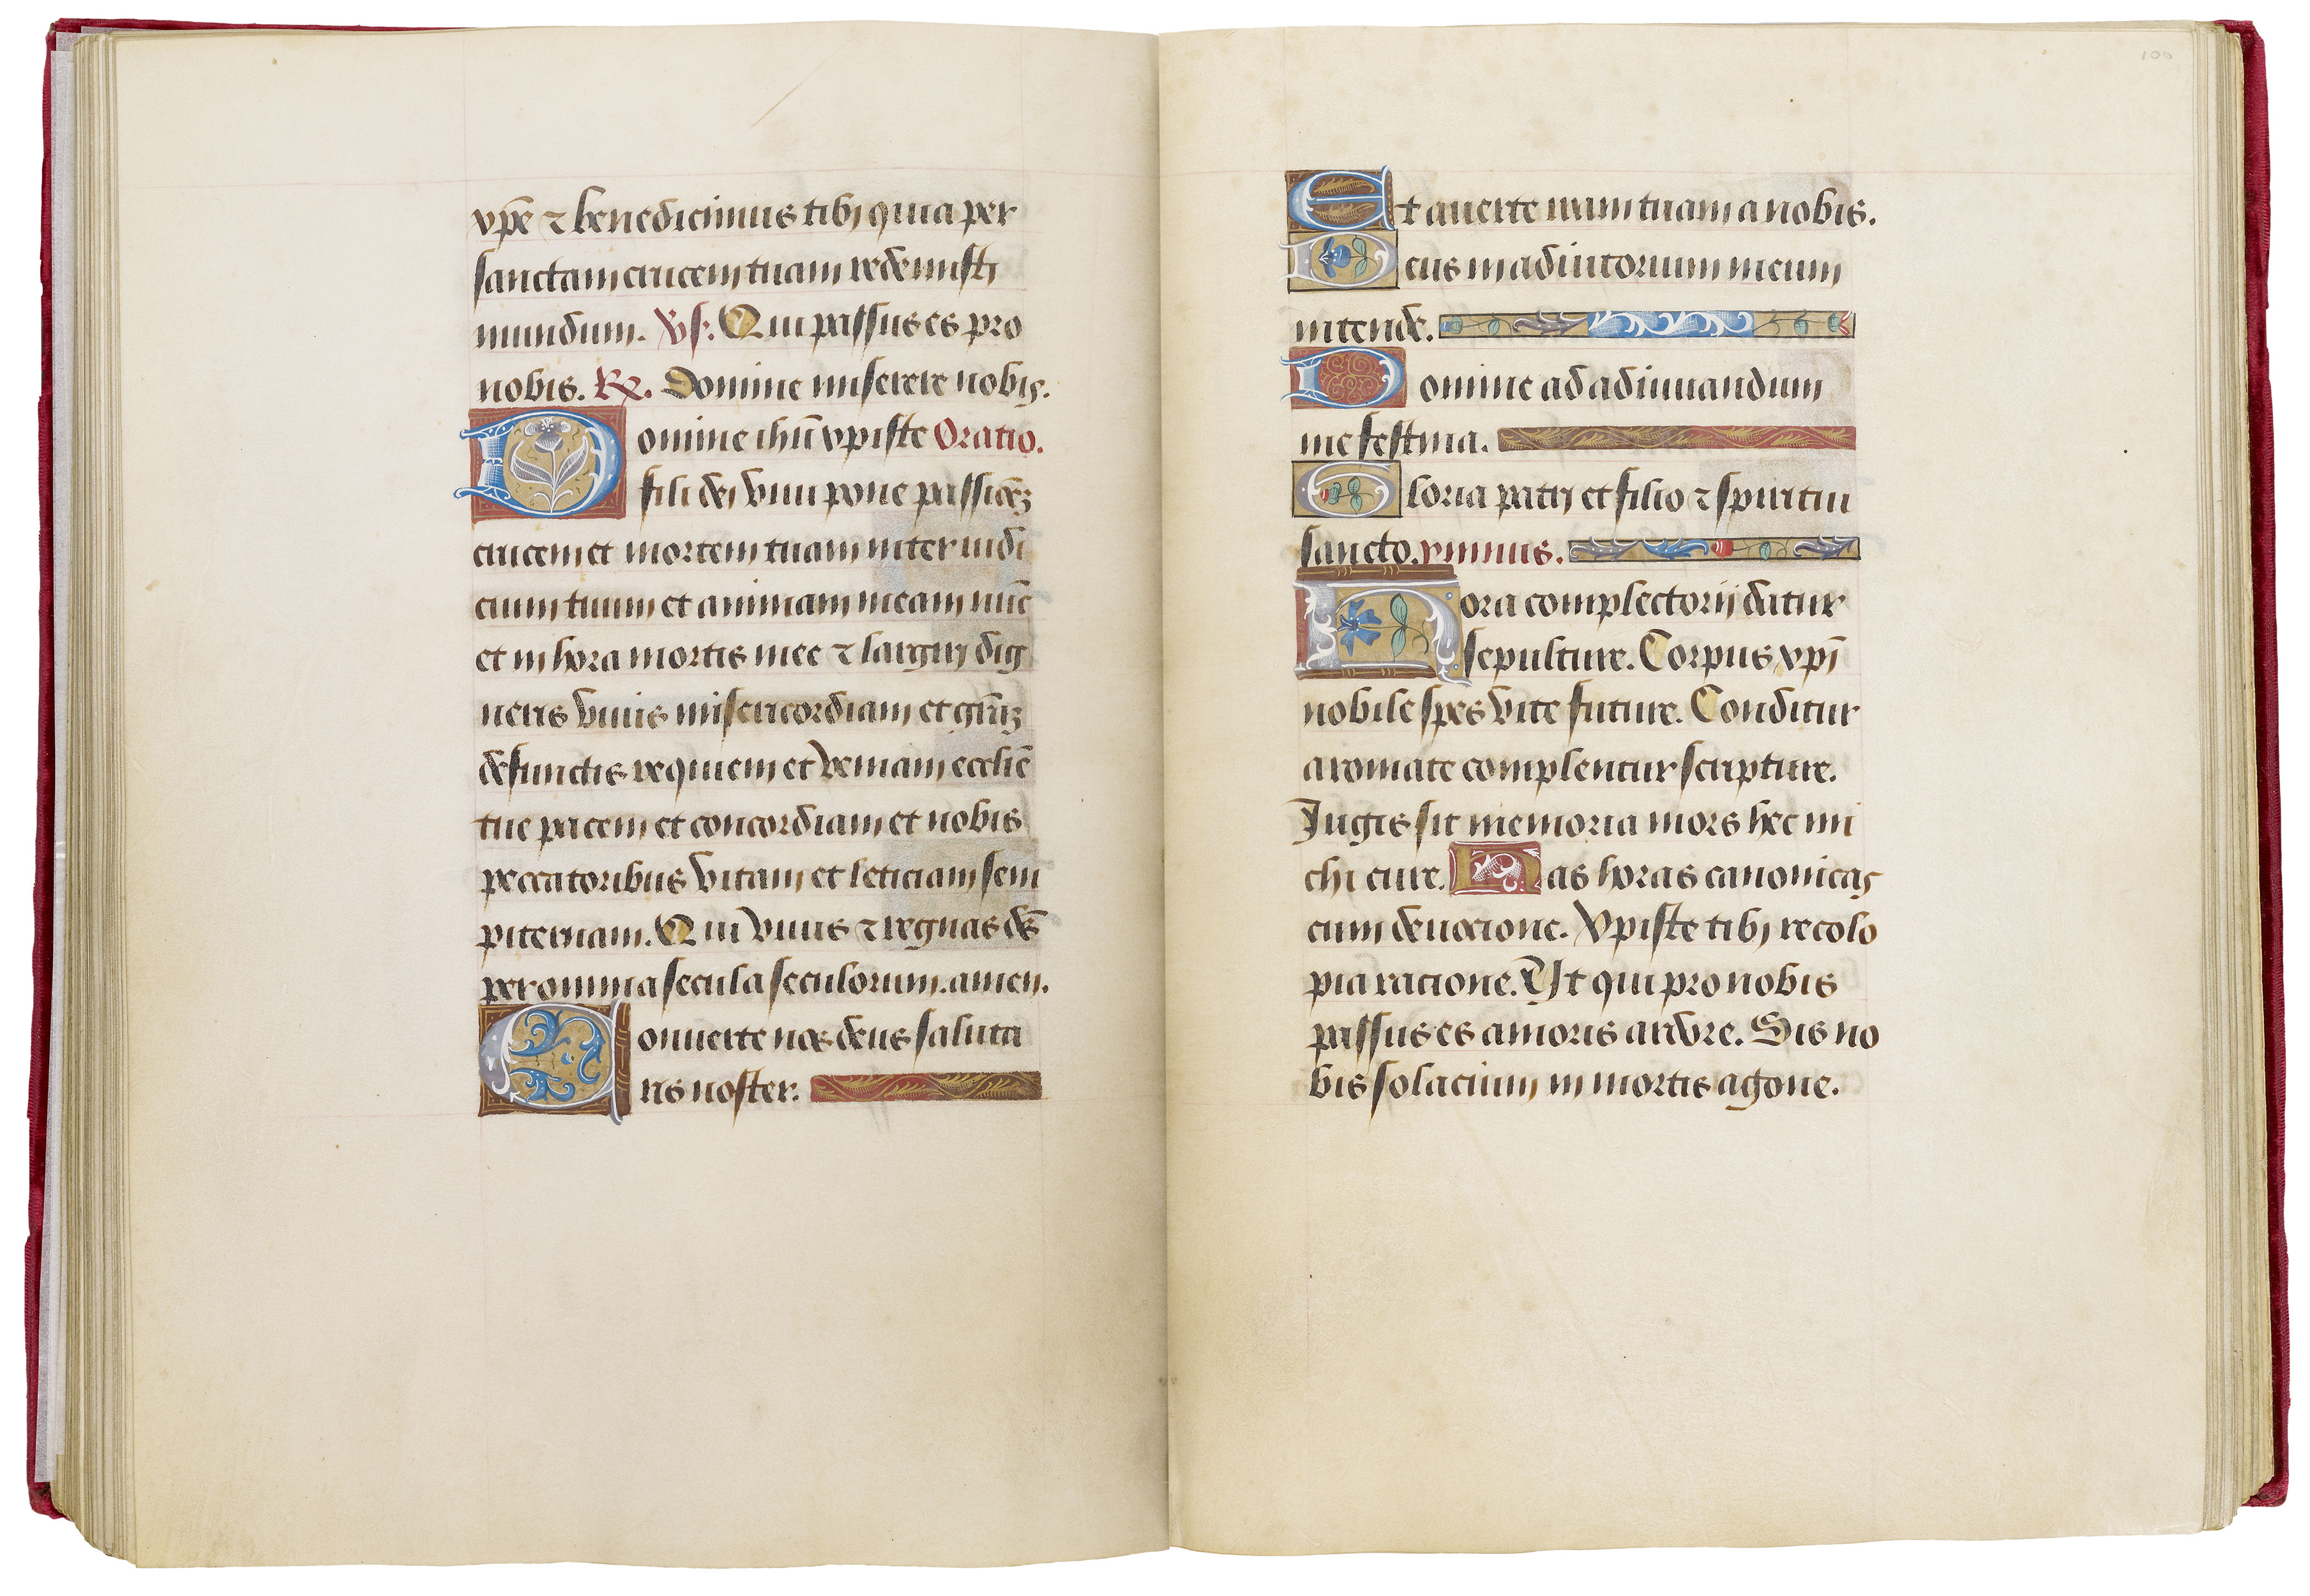 xp̄e ⁊ benedicimus tibj quia per
sanctam crucem tuam redemisti
mundum. Vs. Qui passus es pro
nobis. R̷. Domine miserere nobis.
Domine ihū xpiste Oratio.
fili dei viui pone passiōez
crucem et mortem tuam inter iudi
cium tuum et animam meam nūc
et in hora mortis mee ⁊ largiri dig
neris viuis misericordiam et grāz
defunctis requiem et veniam ecclie
tue pacem et concordiam et nobis
peccatoribus vitam et leticiam sem
piternam. Qui viuis ⁊ regnas des̄
per omnia secula seculorum. amen.
Conuerte nos deus saluta
ris noster.
100
Et auerte iram tuam a nobis.
Deus in adiutorium meum
intende.
Domine ad adiuuandum
me festina.
Gloria patri et filio ⁊ spiritui
sancto. ymnus.
Hora complectorij datur
sepulture. Corpus xpī
nobile spes vite future. Conditur
aromate complentur scripture.
Iugis sit memoria mors hec mi
chi cure. Has horas canonicas
cum deuocione. Xpiste tibj recolo
pia racione. Ut qui pro nobis
passus es amoris ardore. Sis no
bis solacium in mortis agone.